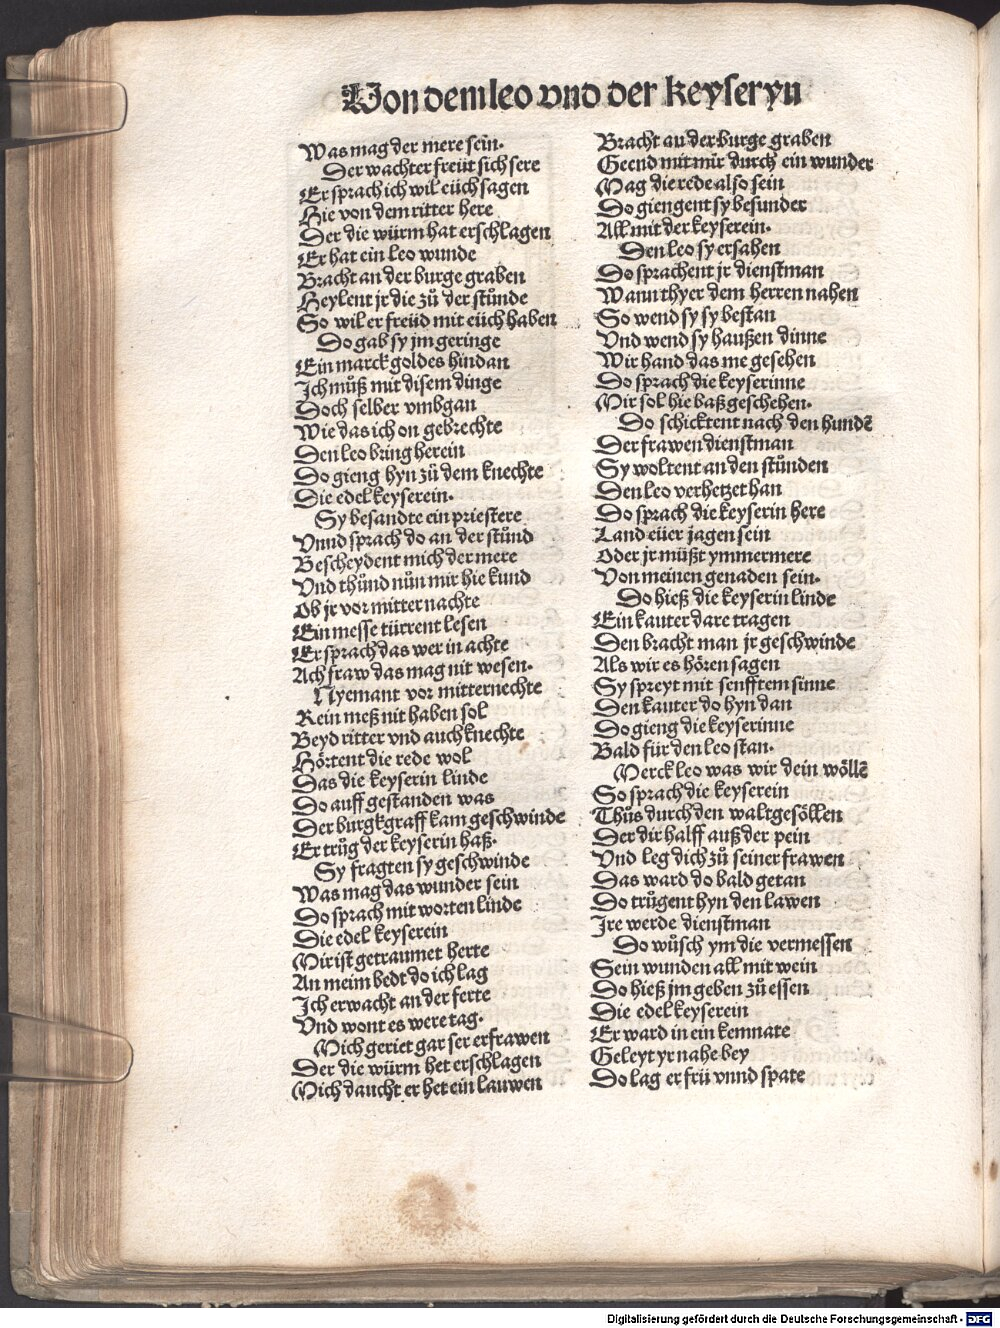 Von dem leo vnd der keyseryn
Was mag der mere sein.
Der wachter freüt sich sere
Er sprach ich wil eüch sagen
Hie von dem ritter here
Der die würm hat erschlagen
Er hat ein leo wunde
Bracht an der burge graben
Heylent jr die zů der stůnde
So wil er freüd mit eüch haben
Do gab sy jm geringe
Ein marck goldes hindan
Ich můß mit disem dinge
Doch selber vmbgan
Wie das ich on gebrechte
Den leo bring herein
Do gieng hyn zů dem knechte
Die edel keyserein.
Sy besandte ein priestere
Vnnd sprach do an der stůnd
Bescheydent mich der mere
Vnd thůnd nůn mir hie kund
Ob jr vor mitter nachte
Ein messe türrent lesen
Er sprach das wer in achte
Ach fraw das mag nit wesen.
Nyemant vor mitternechte
Kein meß nit haben sol
Beyd ritter vnd auch knechte
Hörtent die rede wol
Das die keyserin linde
Do auff gestanden was
Der burgkgraff kam geschwinde
Er trůg der keyserin haß.
Sy fragten sy geschwinde
Was mag das wunder sein
Do sprach mit worten linde
Die edel keyserein
Mir ist getraumet herte
An meim bedt do ich lag
Ich erwacht an der ferte
Vnd wont es were tag.
Mich geriet gar ser erfrawen
Der die würm het erschlagen
Mich daucht er het ein lauwen
Bracht an der burge graben
Geend mit mir durch ein wunder
Mag die rede also sein
Do giengent sy besunder
All mit der keyserein.
Den leo sy ersahen
Do sprachent jr dienstman
Wann thyer dem herren nahen
So wend sy sy bestan
Vnd wend sy haußen dinne
Wir hand das me gesehen
Do sprach die keyserinne
Mir sol hie baß geschehen.
Do schicktent nach den hundē
Der frawen dienstman
Sy woltent an den stůnden
Den leo verhetzet han
Do sprach die keyserin here
Land eüer jagen sein
Oder jr müßt ymmermere
Von meinen genaden sein.
Do hieß die keyserin linde
Ein kauter dare tragen
Den bracht man jr geschwinde
Als wir es hören sagen
Sy spreyt mit senfftem sinne
Den kauter do hyn dan
Do gieng die keyserinne
Bald für den leo stan.
Merck leo was wir dein wöllē
So sprach die keyserein
Thůs durch den waltgesöllen
Der dir halff auß der pein
Vnd leg dich zů seiner frawen
Das ward do bald getan
Do trůgent hyn den lawen
Ire werde dienstman
Do wůsch ym die vermessen
Sein wunden all mit wein
Do hieß jm geben zů essen
Die edel keyserein
Er ward in ein kemnate
Geleyt yr nahe bey
Do lag er frü vnnd spate
Digitalisierung gefördert durch die Deutsche Forschungsgemeinschaft - DFG